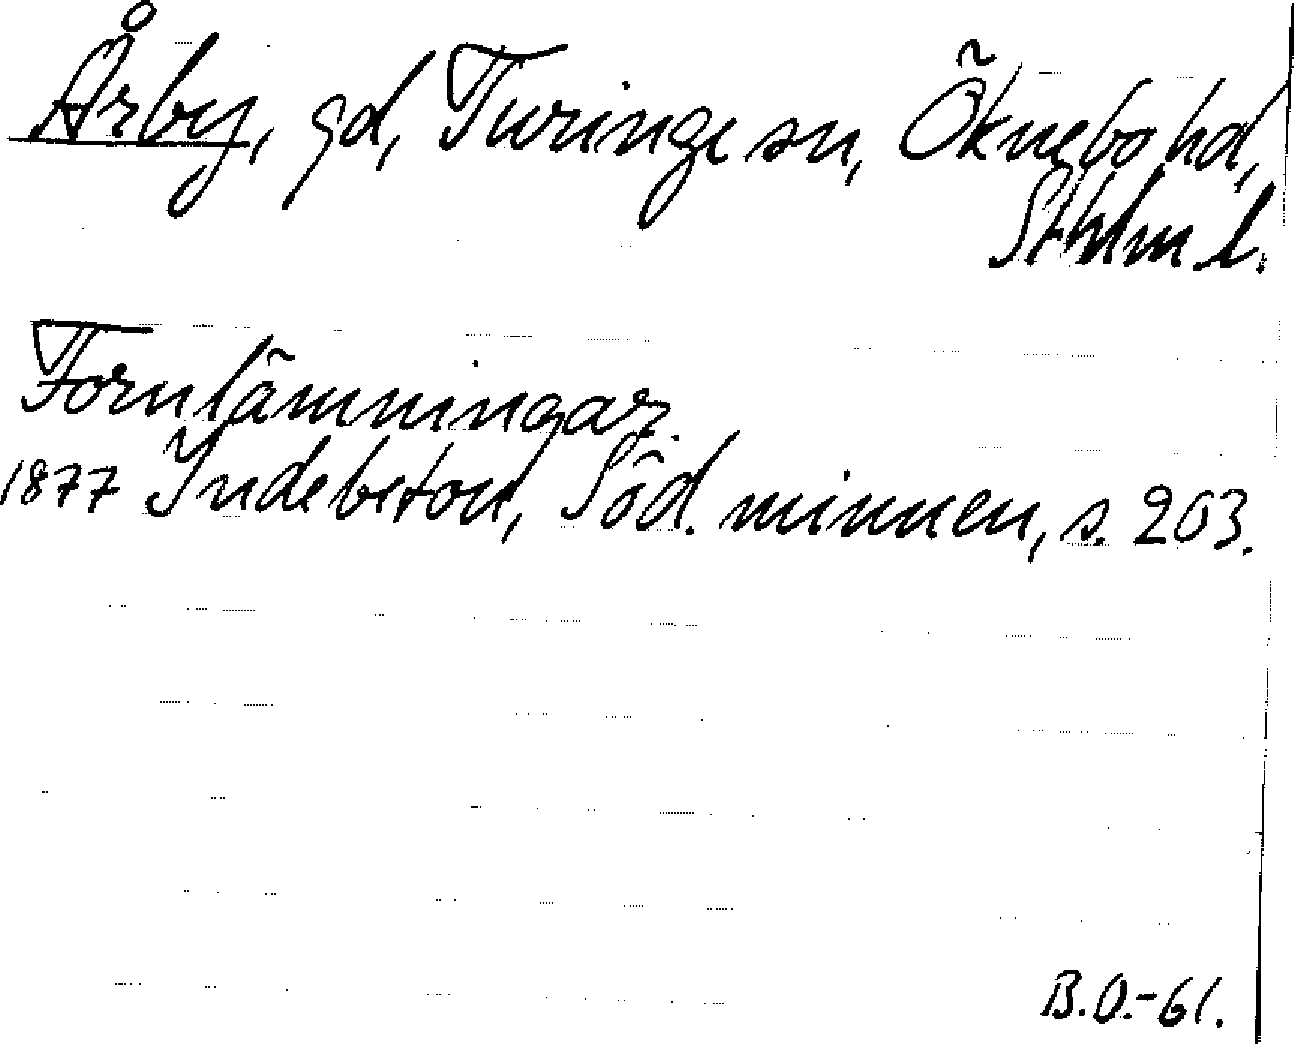 Årby, gd, Turinge sn, Öknebo hd,
Sthlm l.
Fornlämningar.
1877 Indebetou, Söd. minnen, s. 203.
B.O.-61.